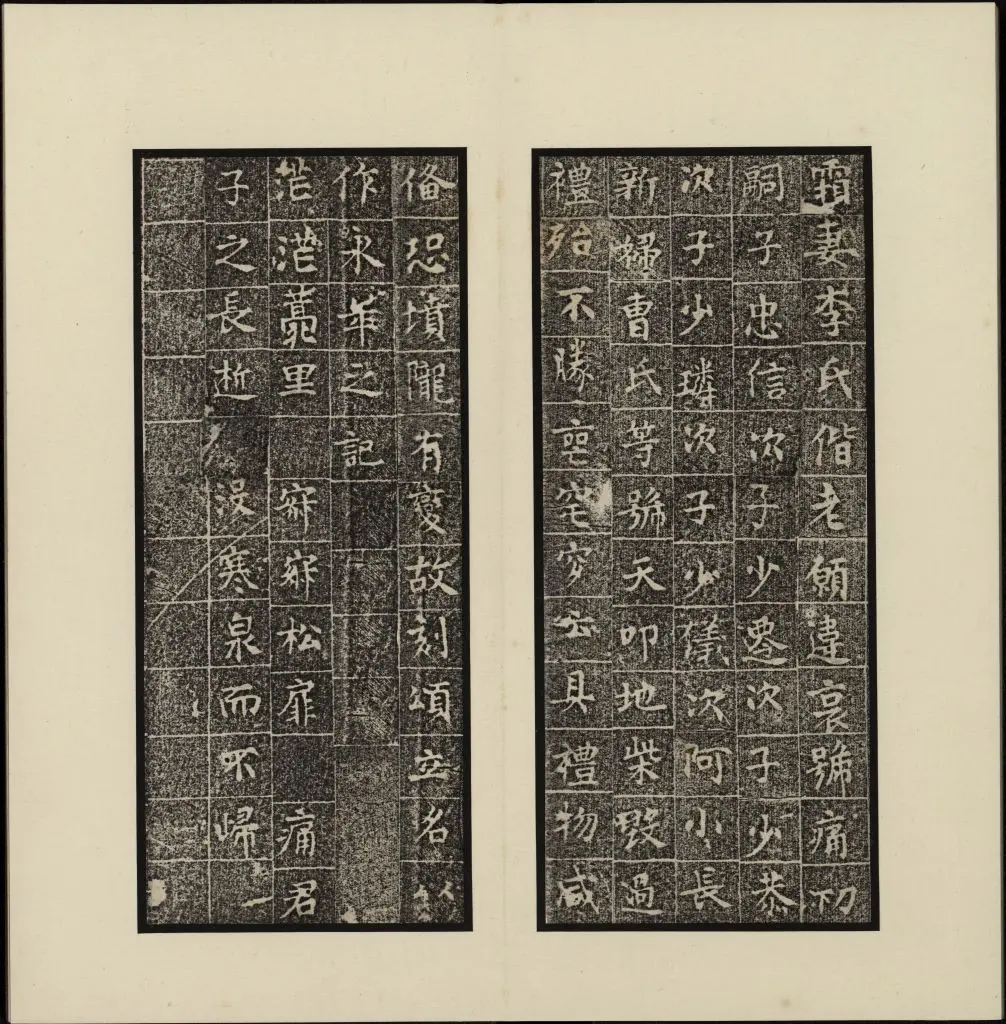 霜妻李氏偕老願違哀號痛切
嗣子忠信次子少遷次子少恭
次子少璘次子少儀次阿小長
新婦曹氏等號天叩地柴毀過
禮殆不勝喪宅穸必具禮物咸
俻恐墳隴有變故刻頌立名以
作永年之記
茫茫蒿里寂寂松扉痛君
子之長逝沒寒泉而不歸